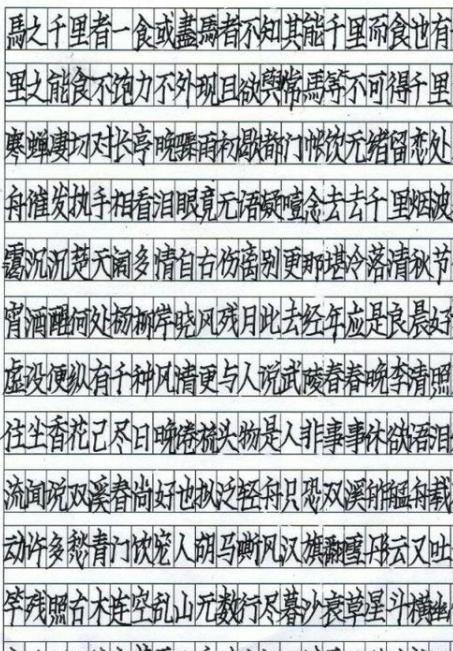 馬之千里者一食或盡馬者不知其能千里而食也有
里之能食不饱力不外现且欲與常馬等不可得千里
寒蝉凄切对长亭晚骤雨初歇都门帐饮无绪留恋处
舟催发执手相看泪眼竟无语凝噎念去去千里烟波
霭沉沉楚天阔多情自古伤离别更那堪冷落清秋节
宵酒醒何处杨柳岸晓风残月此去经年应是良晨好
虚设便纵有千种风情更与人说武陵春春晚李清照
住尘香花已尽日晚倦梳头物是人非事事休欲语泪
流闻说双溪春尚好也拟泛轻舟只恐双溪舴艋舟载
动许多愁青门饮宠人胡马嘶风汉旗翻雪彤云又吐
竿残照古木连空乱山无数行尽暮沙衰草星斗横幽